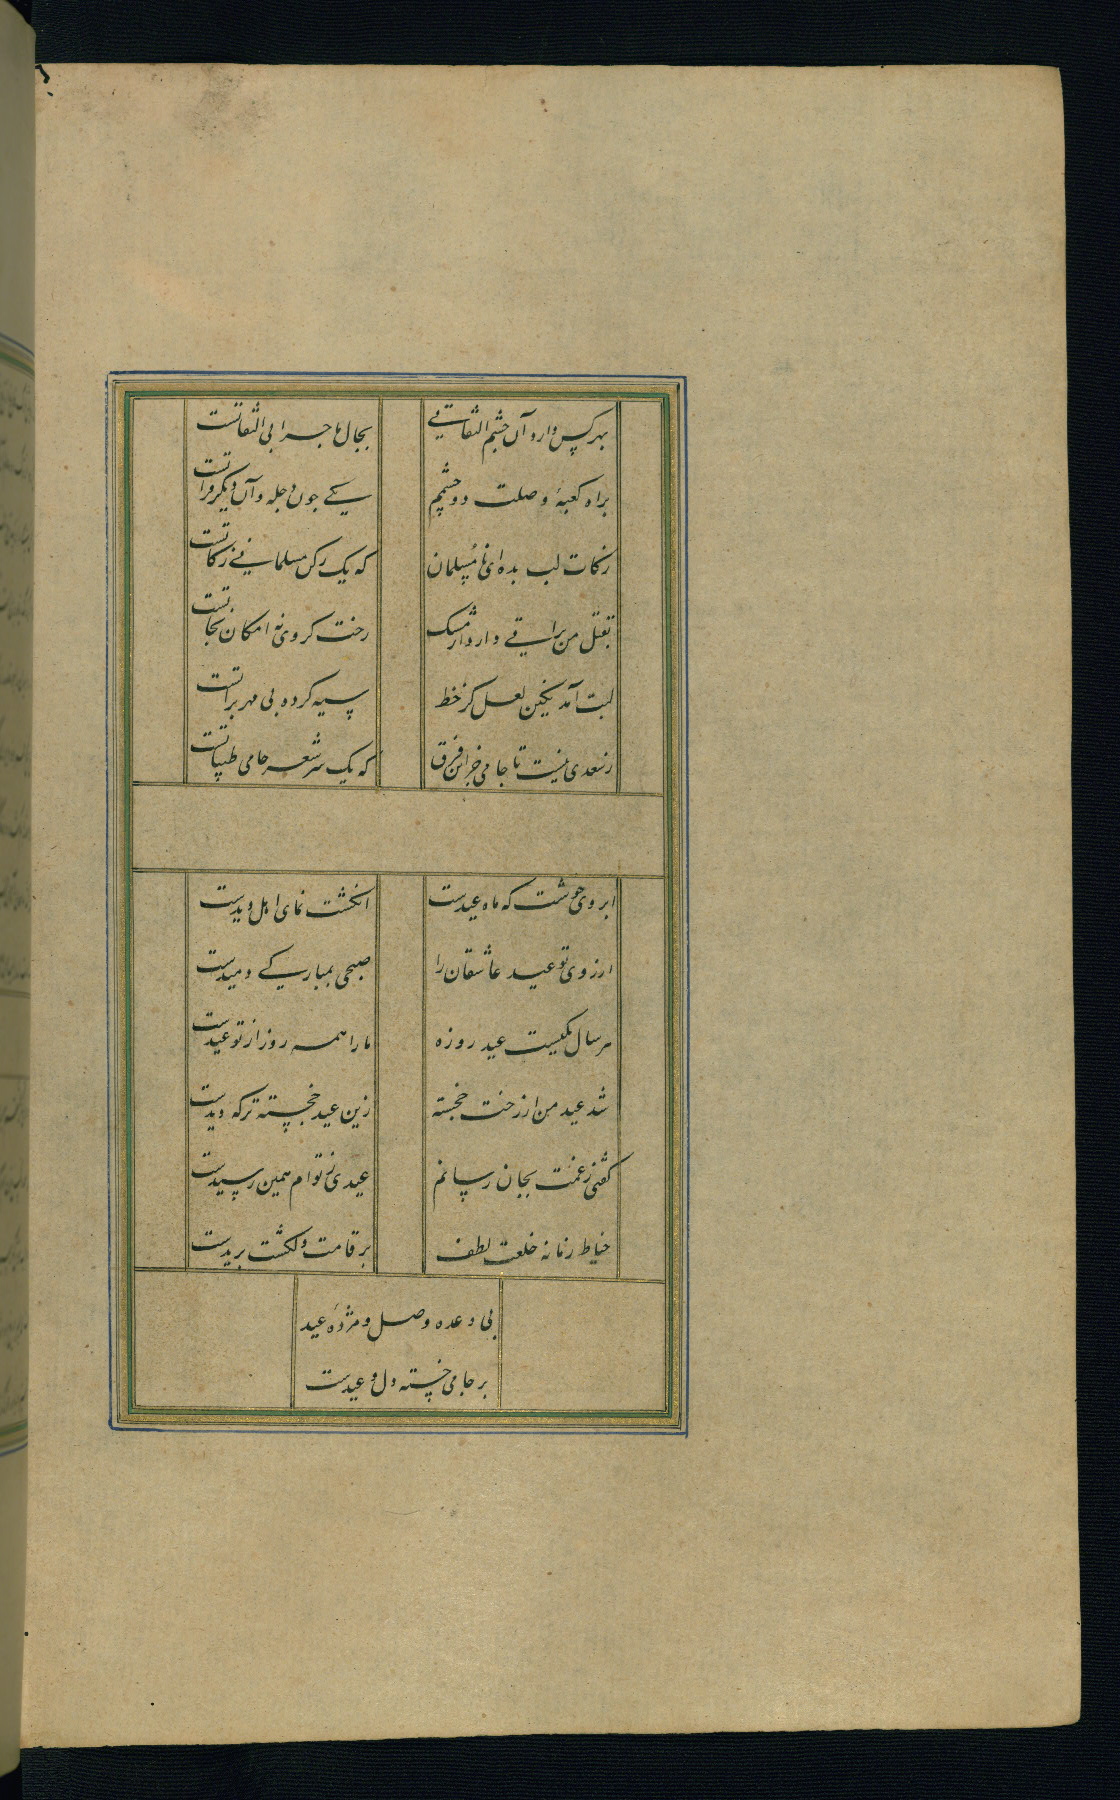 بهر کس دارد آن چشم التفاتی بحال ما چرا بی التفاتست
براه کعبهٔ وصلت دو چشمم یکی چون دجله و آن دیگر فراتست
زکات لب بده ای نامسلمان که یک رکن مسلمانی زکاتست
بقتل من براتی دارد از مشک رخت کز وی نه امکان نجاتست
لبت آمد نگین لعل کز خط سیه کرده بی مهر براتست
ز سعدی نیست تا جامی جز این فرق که یک سر شعر جامی طیباتست
ابروی خوشت که ماه عیدست انکشت نمای اهل دیدست
از روی تو عید عاشقان را صبحی بمبارکی دمیدست
هر سال یکیست عید روزه ما را همه روز از تو عیدست
شد عید من از رخت خجسته زین عید خجسته تر که دیدست
کفتی ز غمت بجان رسانم عیدی ز توام همین رسیدست
خیاط زمانه خلعت لطف بر قامت دلکشت بریدست
بی وعده وصل و مژدهٔ عید
بر جامی خسته دل وعیدست